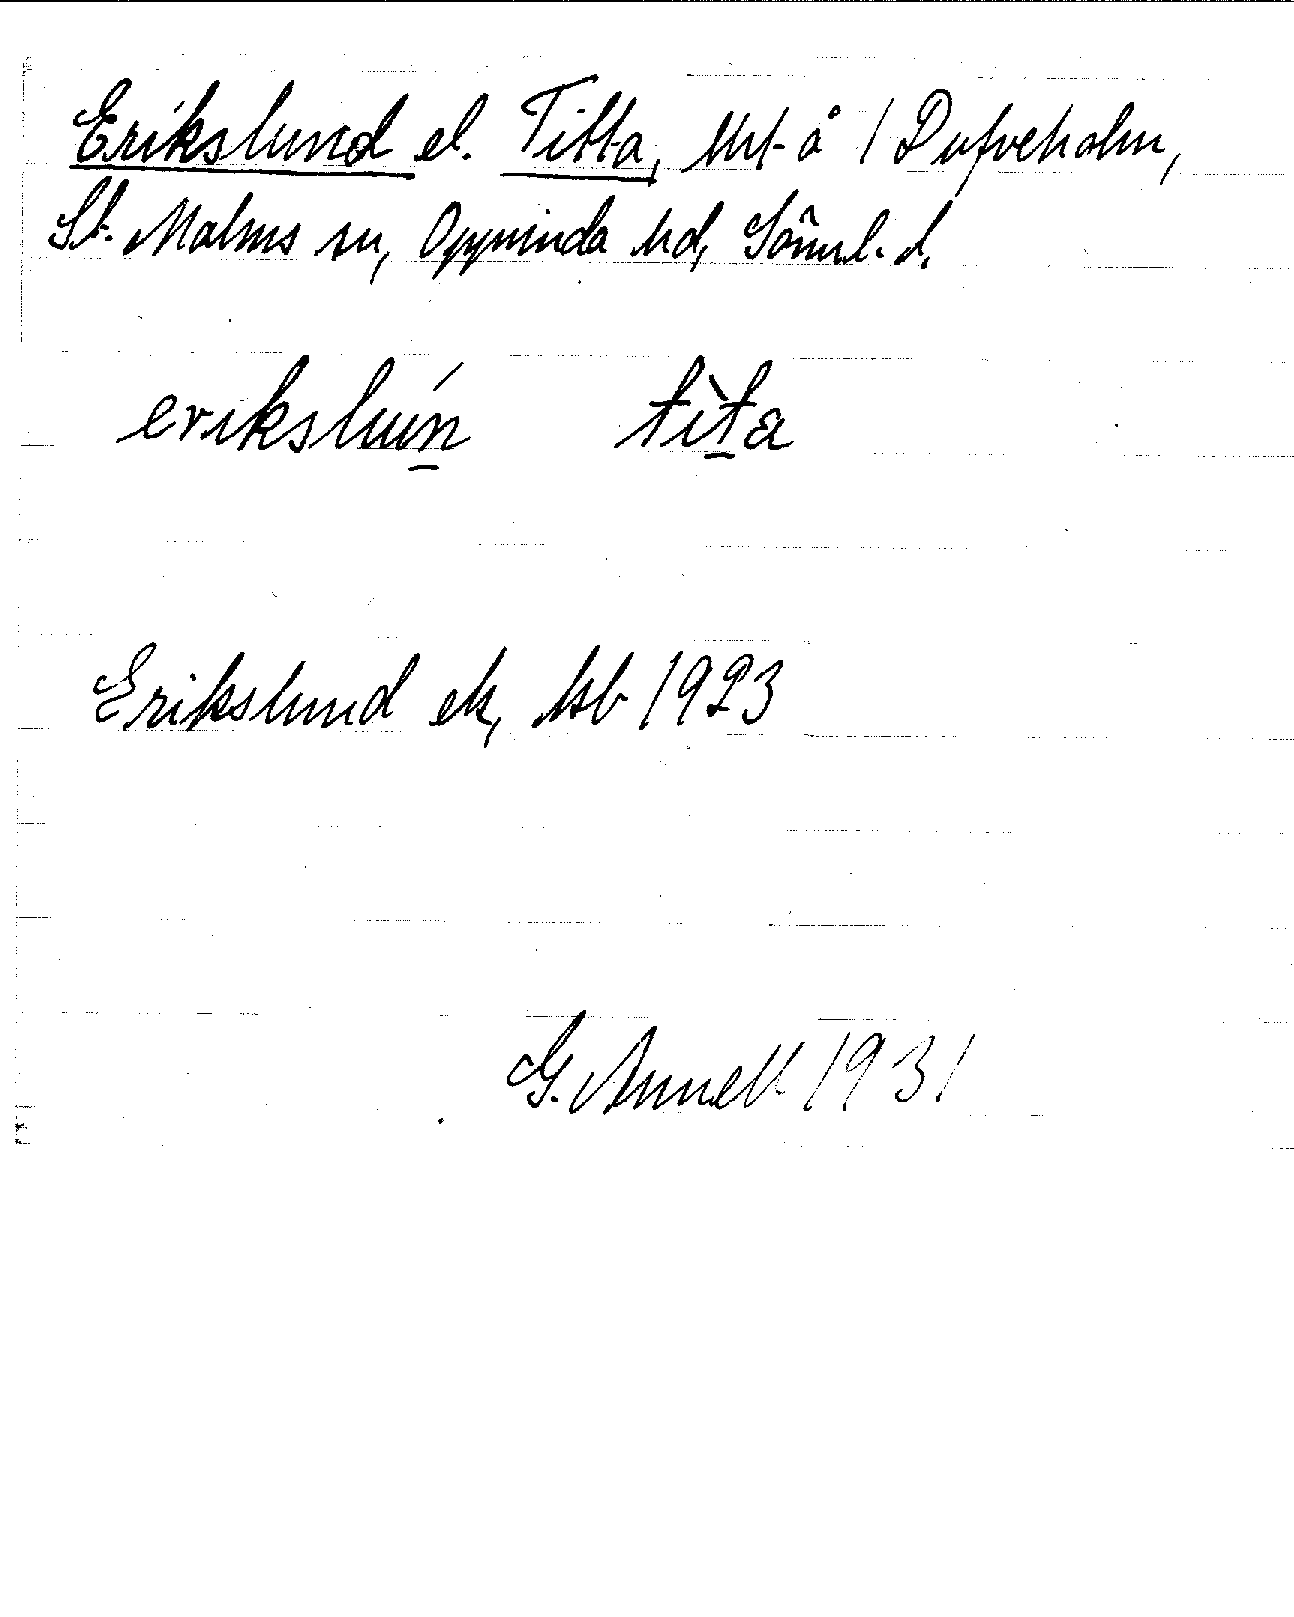 Erikslund el. Titta, urt å 1 Dufveholm,
St. Malms sn, Oppunda hd, Söderml. l.
erikslún tìta
Erikslund ek, ksb 1923
G. Annell 1931